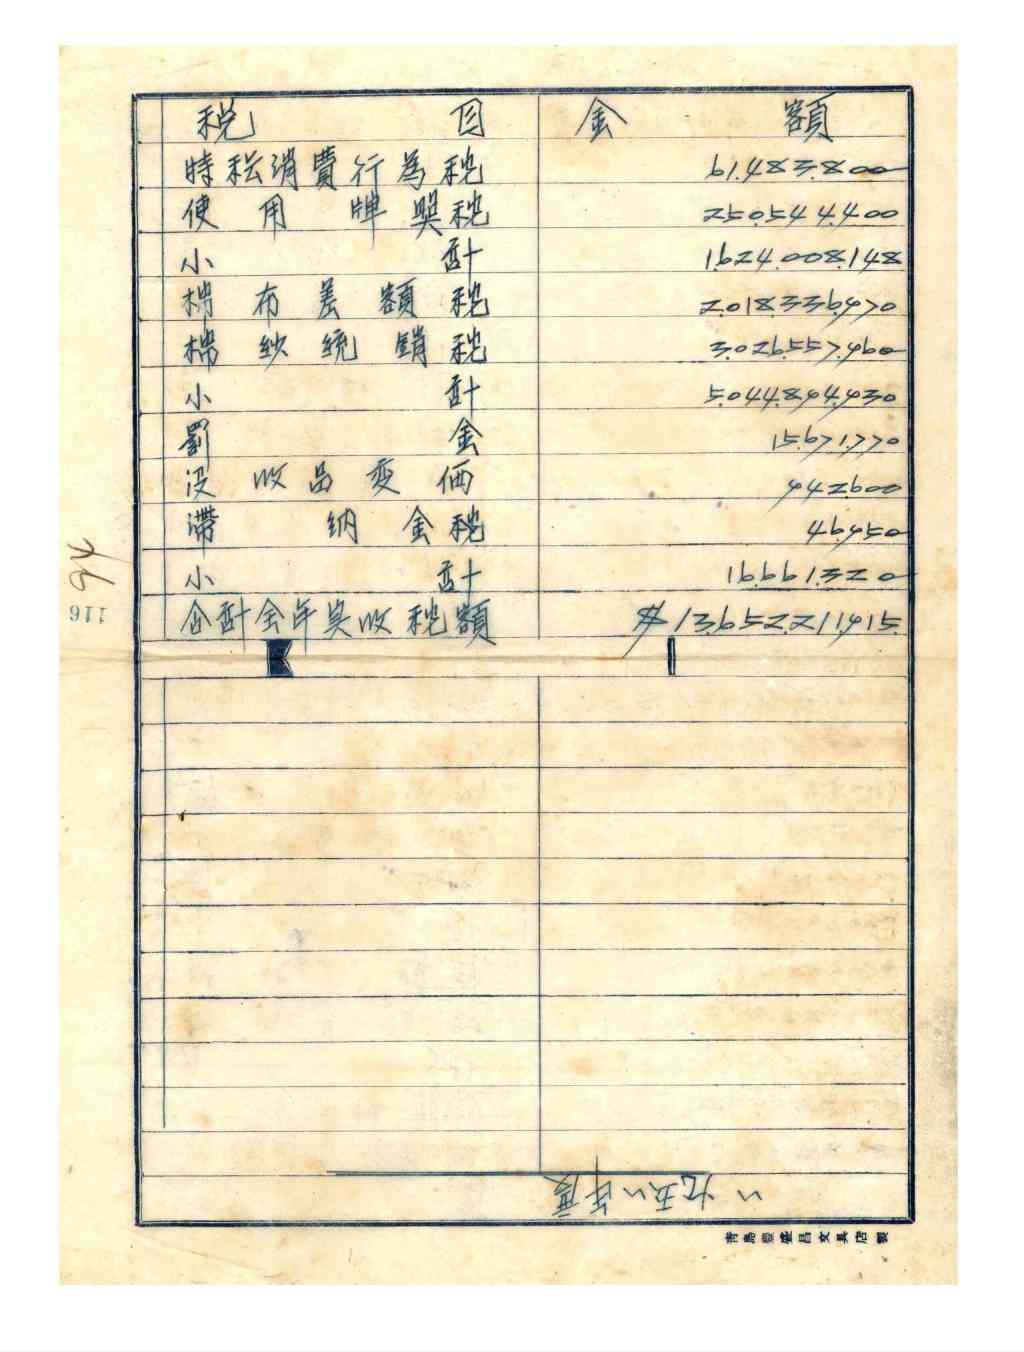 税目 金額
特种消費行為税 61.483.800
使用牌照税 250.544.400
小計 1.624.008.148
棉布差額税 2.018.336.970
棉紗統銷税 3.026.557.960
小計 5.044.894.930
罰金 15.671.770
没收品变価 942.600
滯纳金税 46.950
小計 16.661.320
合計全年实收税額 $13.652.221.915.
116
一九五一年度
青島豐盛昌文具店製